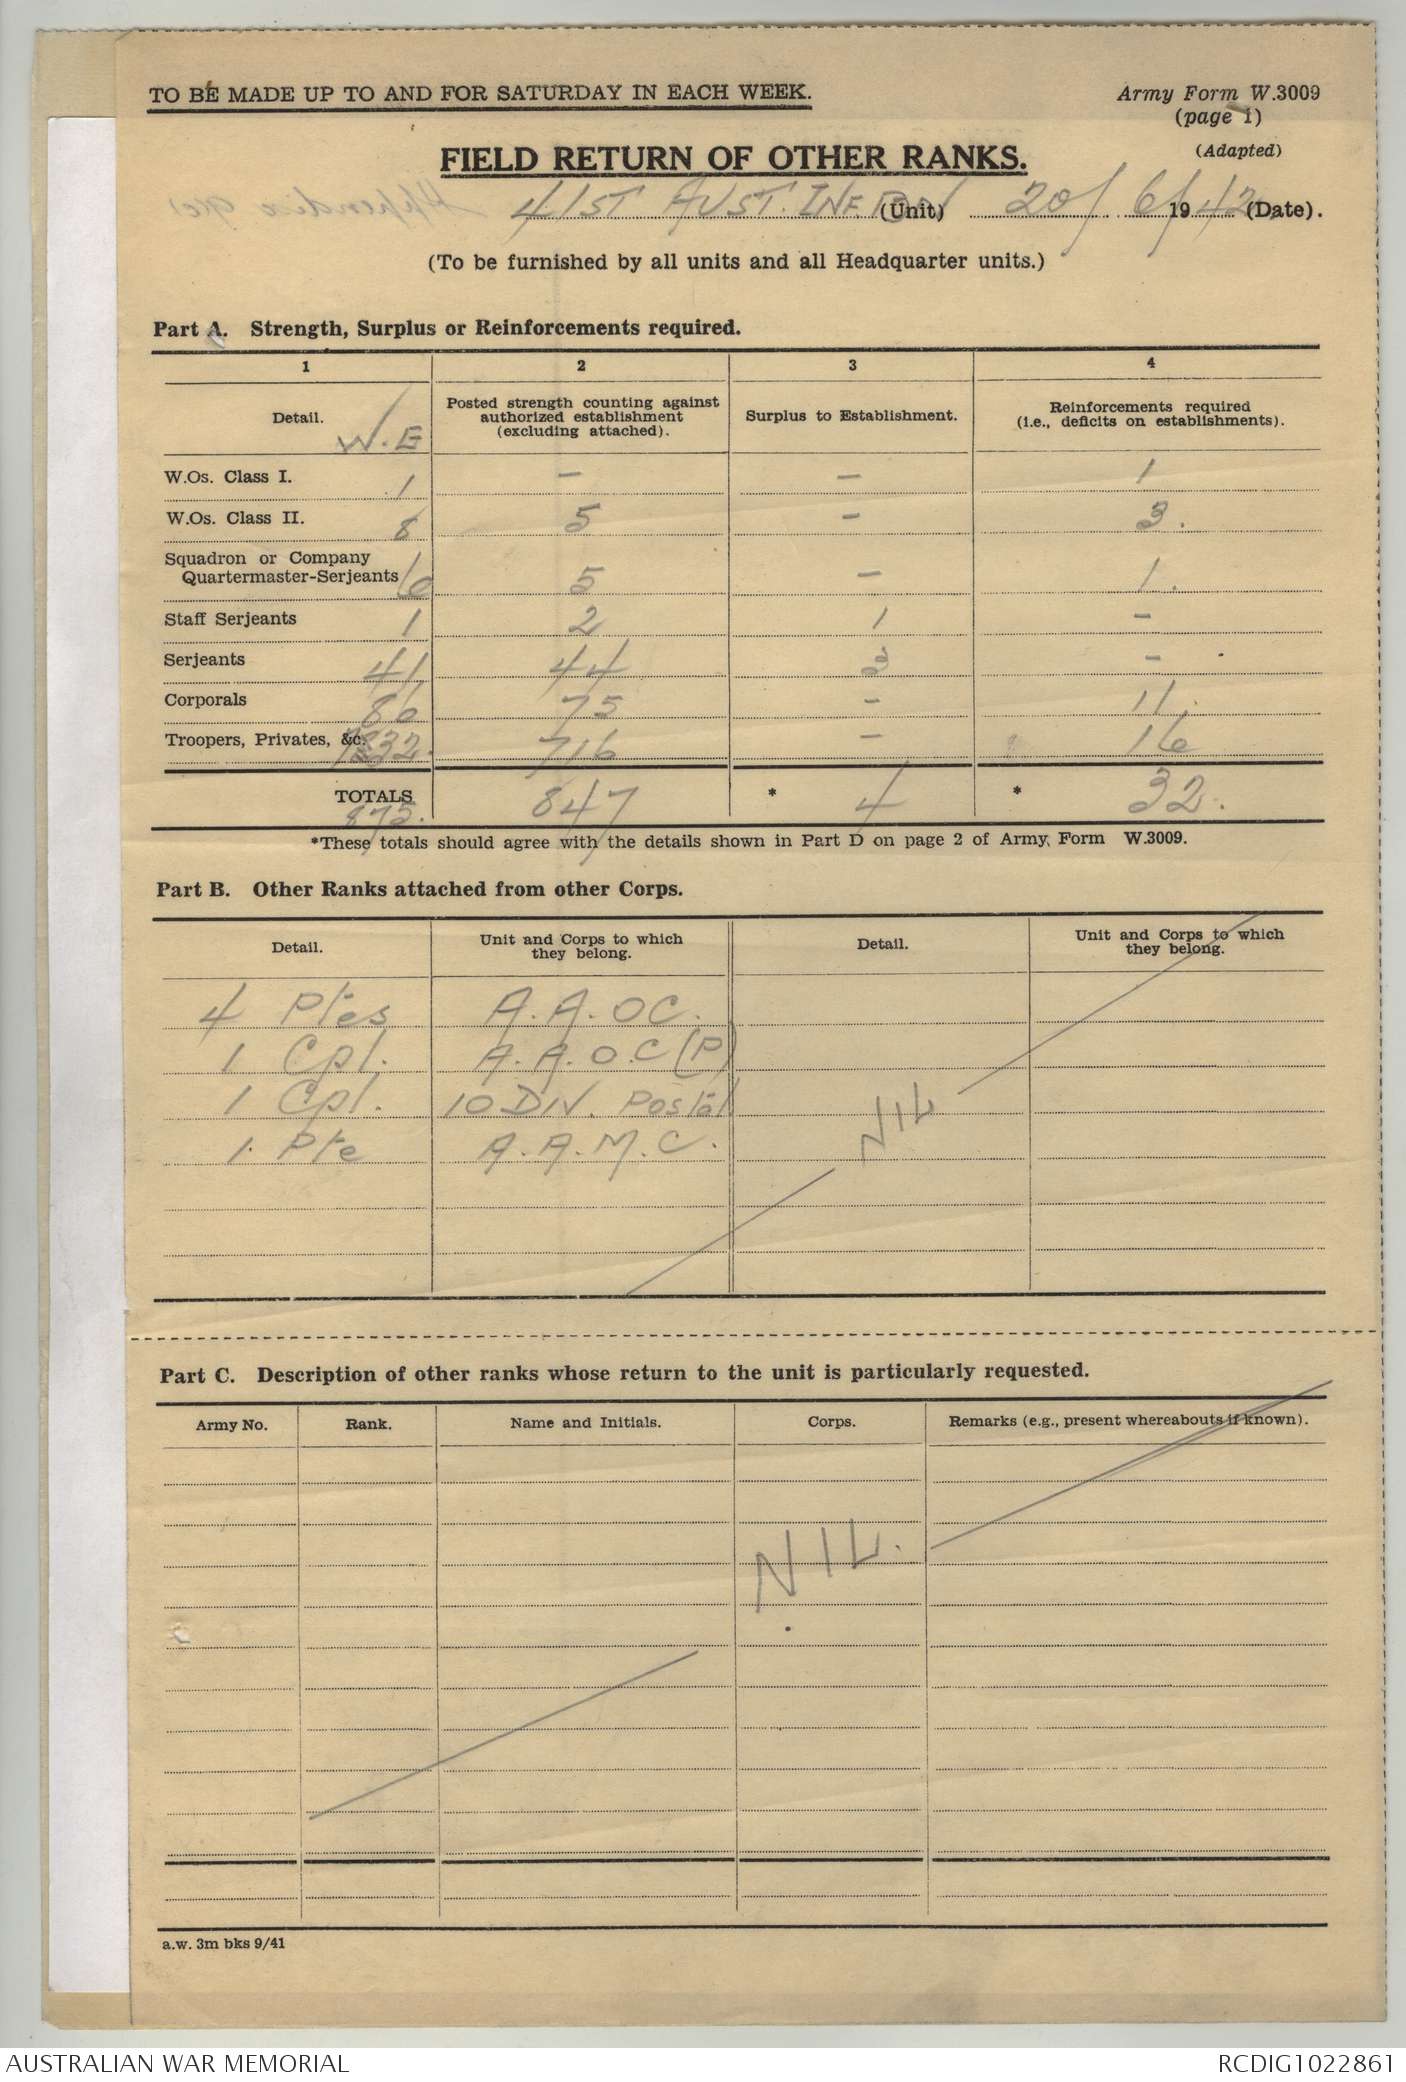 TO BE MADE UP TO AND FOR SATURDAY IN EACH WEEK.
Army Form W.3009
(page 1)
(Adapted)
FIELD RETURN OF OTHER RANKS.
41ST AUST. INF BN (Unit) 20/6/1942 (Date).
(To be furnished by all units and all Headquarter units.)
Part A. Strength, Surplus or Reinforcements required.
1 2 3 4
Detail. W.E Posted strength counting against authorized establishment (excluding attached). Surplus to Establishment. Reinforcements required (i.e., deficits on establishments).
W.Os. Class I. 1 – – 1
W.Os. Class II. 8 5 – 3.
Squadron or Company
Quartermaster-Serjeants 6 5 – 1.
Staff Serjeants 1 2 1 –
Serjeants 41 44 3 –
Corporals 86 75 – 11.
Troopers, Privates, &c. 732. 716 – 16
TOTALS 875. 847 * 4 * 32.
*These totals should agree with the details shown in Part D on page 2 of Army Form W.3009.
Part B. Other Ranks attached from other Corps.
Detail. Unit and Corps to which they belong. Detail. Unit and Corps to which they belong.
4 Ptes A.A.OC.
1 Cpl. A.A.O.C (P)
1 Cpl. 10 DIV. Postal
1. Pte A.A.M.C.
NIL
Part C. Description of other ranks whose return to the unit is particularly requested.
Army No. Rank. Name and Initials. Corps. Remarks (e.g., present whereabouts if known).
NIL.
a.w. 3m bks 9/41
AUSTRALIAN WAR MEMORIAL
RCDIG1022861